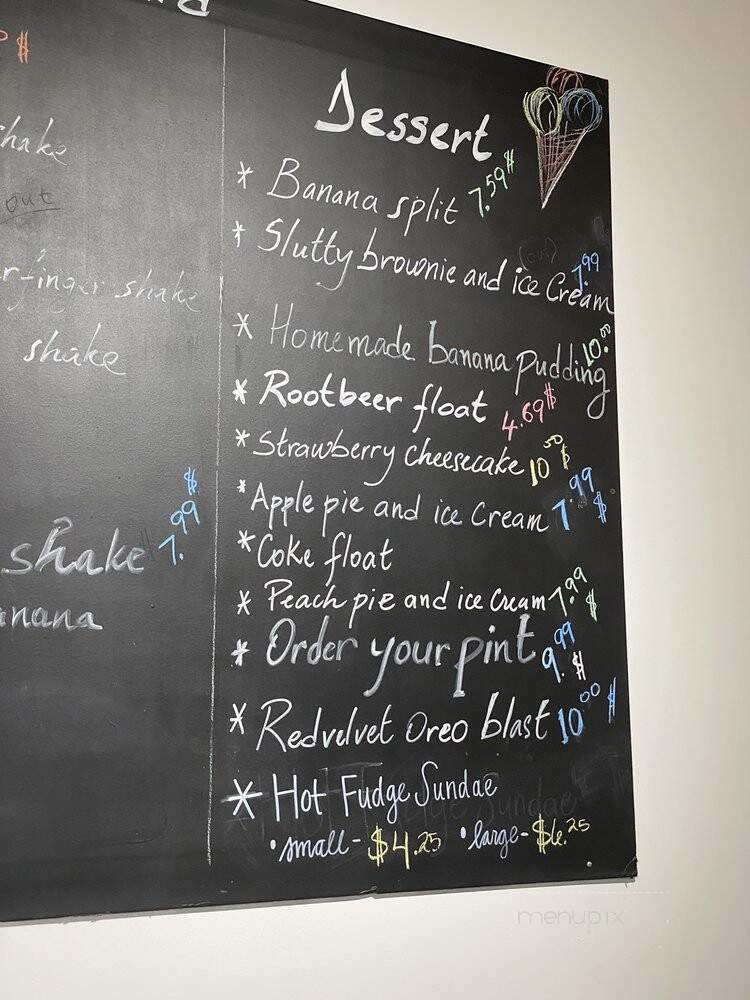 $
shake
out
rfinger shake
shake
shake 7.99 $
anana
Dessert
* Banana split 7.59$
* Slutty brownie and ice Cream 7.99
(out)
* Homemade banana pudding 10.00
* Rootbeer float 4.69$
* Strawberry cheesecake 10.50 $
* Apple pie and ice Cream 7.99 $
* Coke float
* Peach pie and ice Cream 7.99 $
* Order your pint 9.99 $
* Redvelvet Oreo blast 10.00 $
* Hot Fudge Sundae
• small - $4.25 • large - $6.25
menupix